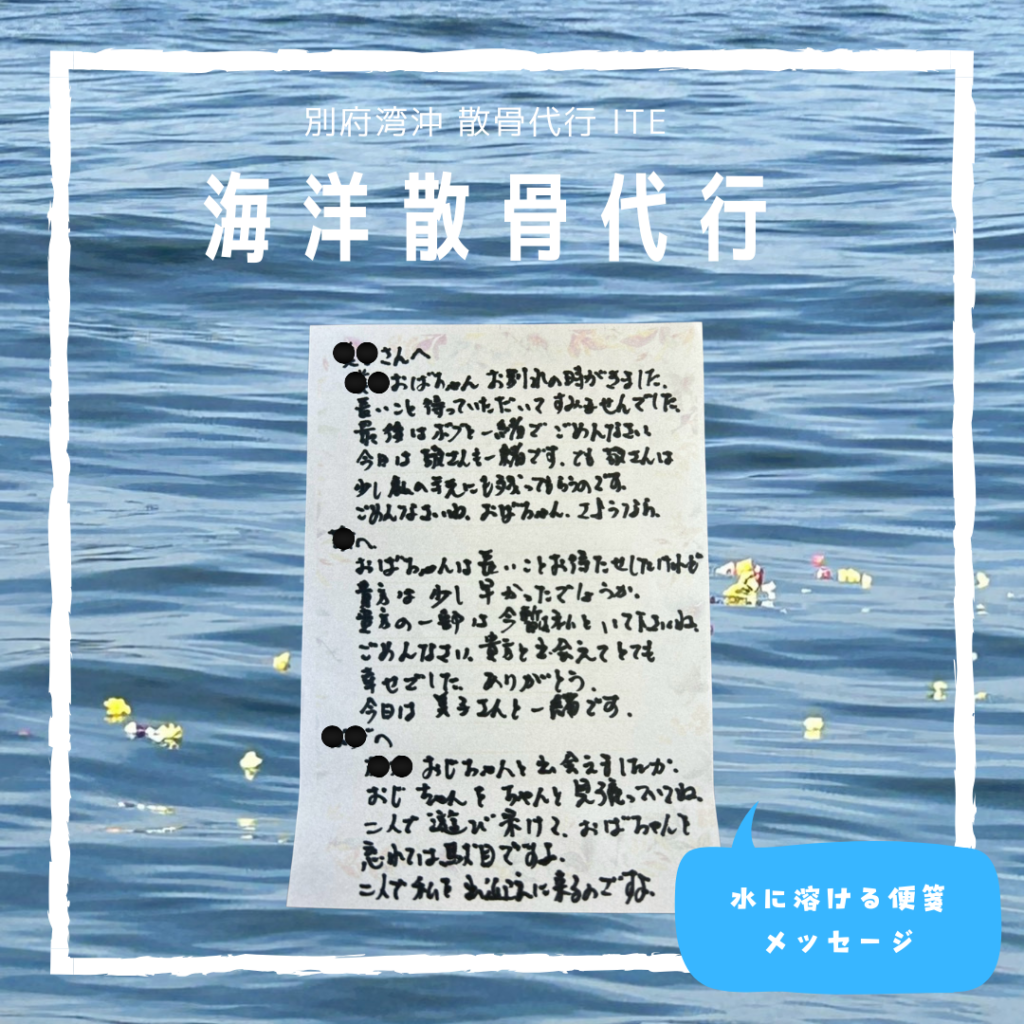 別府湾沖 散骨代行 ITE
海洋散骨代行
さんへ
おばちゃん お別れの時がきました。
長いこと 待っていただいて すみませんでした。
最後は ボクと一緒で ごめんなさいと
今日は 娘さんも一緒です。でも 娘さんは
少し 私の手元にも残ってもらうのです。
ごめんなさいね、おばちゃん、さようなら。
へ
おばちゃんは 長いことお待たせしたけれど
貴方は 少し 早かったでしょうか。
貴方の一部は 今
ごめんなさい、貴方と出会えて とても
幸せでした。ありがとう。
今日は 美子さんと一緒です。
へ
おじちゃんと出会えましたか。
おじちゃんを ちゃんと 見張っていてね。
二人で 遊び 呆けて、おばちゃんを
忘れては駄目ですよ。
二人で 私を お迎えに来るのですよ。
水に溶ける便箋
メッセージ